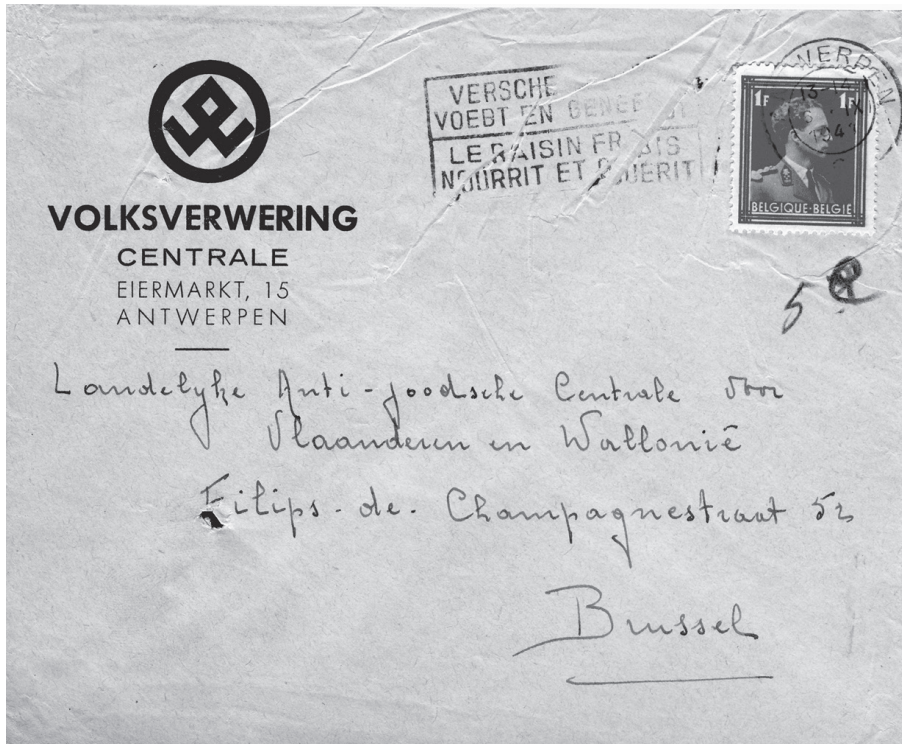 VOLKSVERWERING
CENTRALE
EIERMARKT, 15
ANTWERPEN
VERSCHE
VOEDT EN GENEE
LE RAISIN FR IS
NOURRIT ET GUERIT
NERPEN
13-
IX
194
1F 1F
BELGIQUE-BELGIË
5
Landelyke Anti-joodsche Centrale voor
Vlaanderen en Wallonië
Filips-de-Champagnestraat 52
Brussel